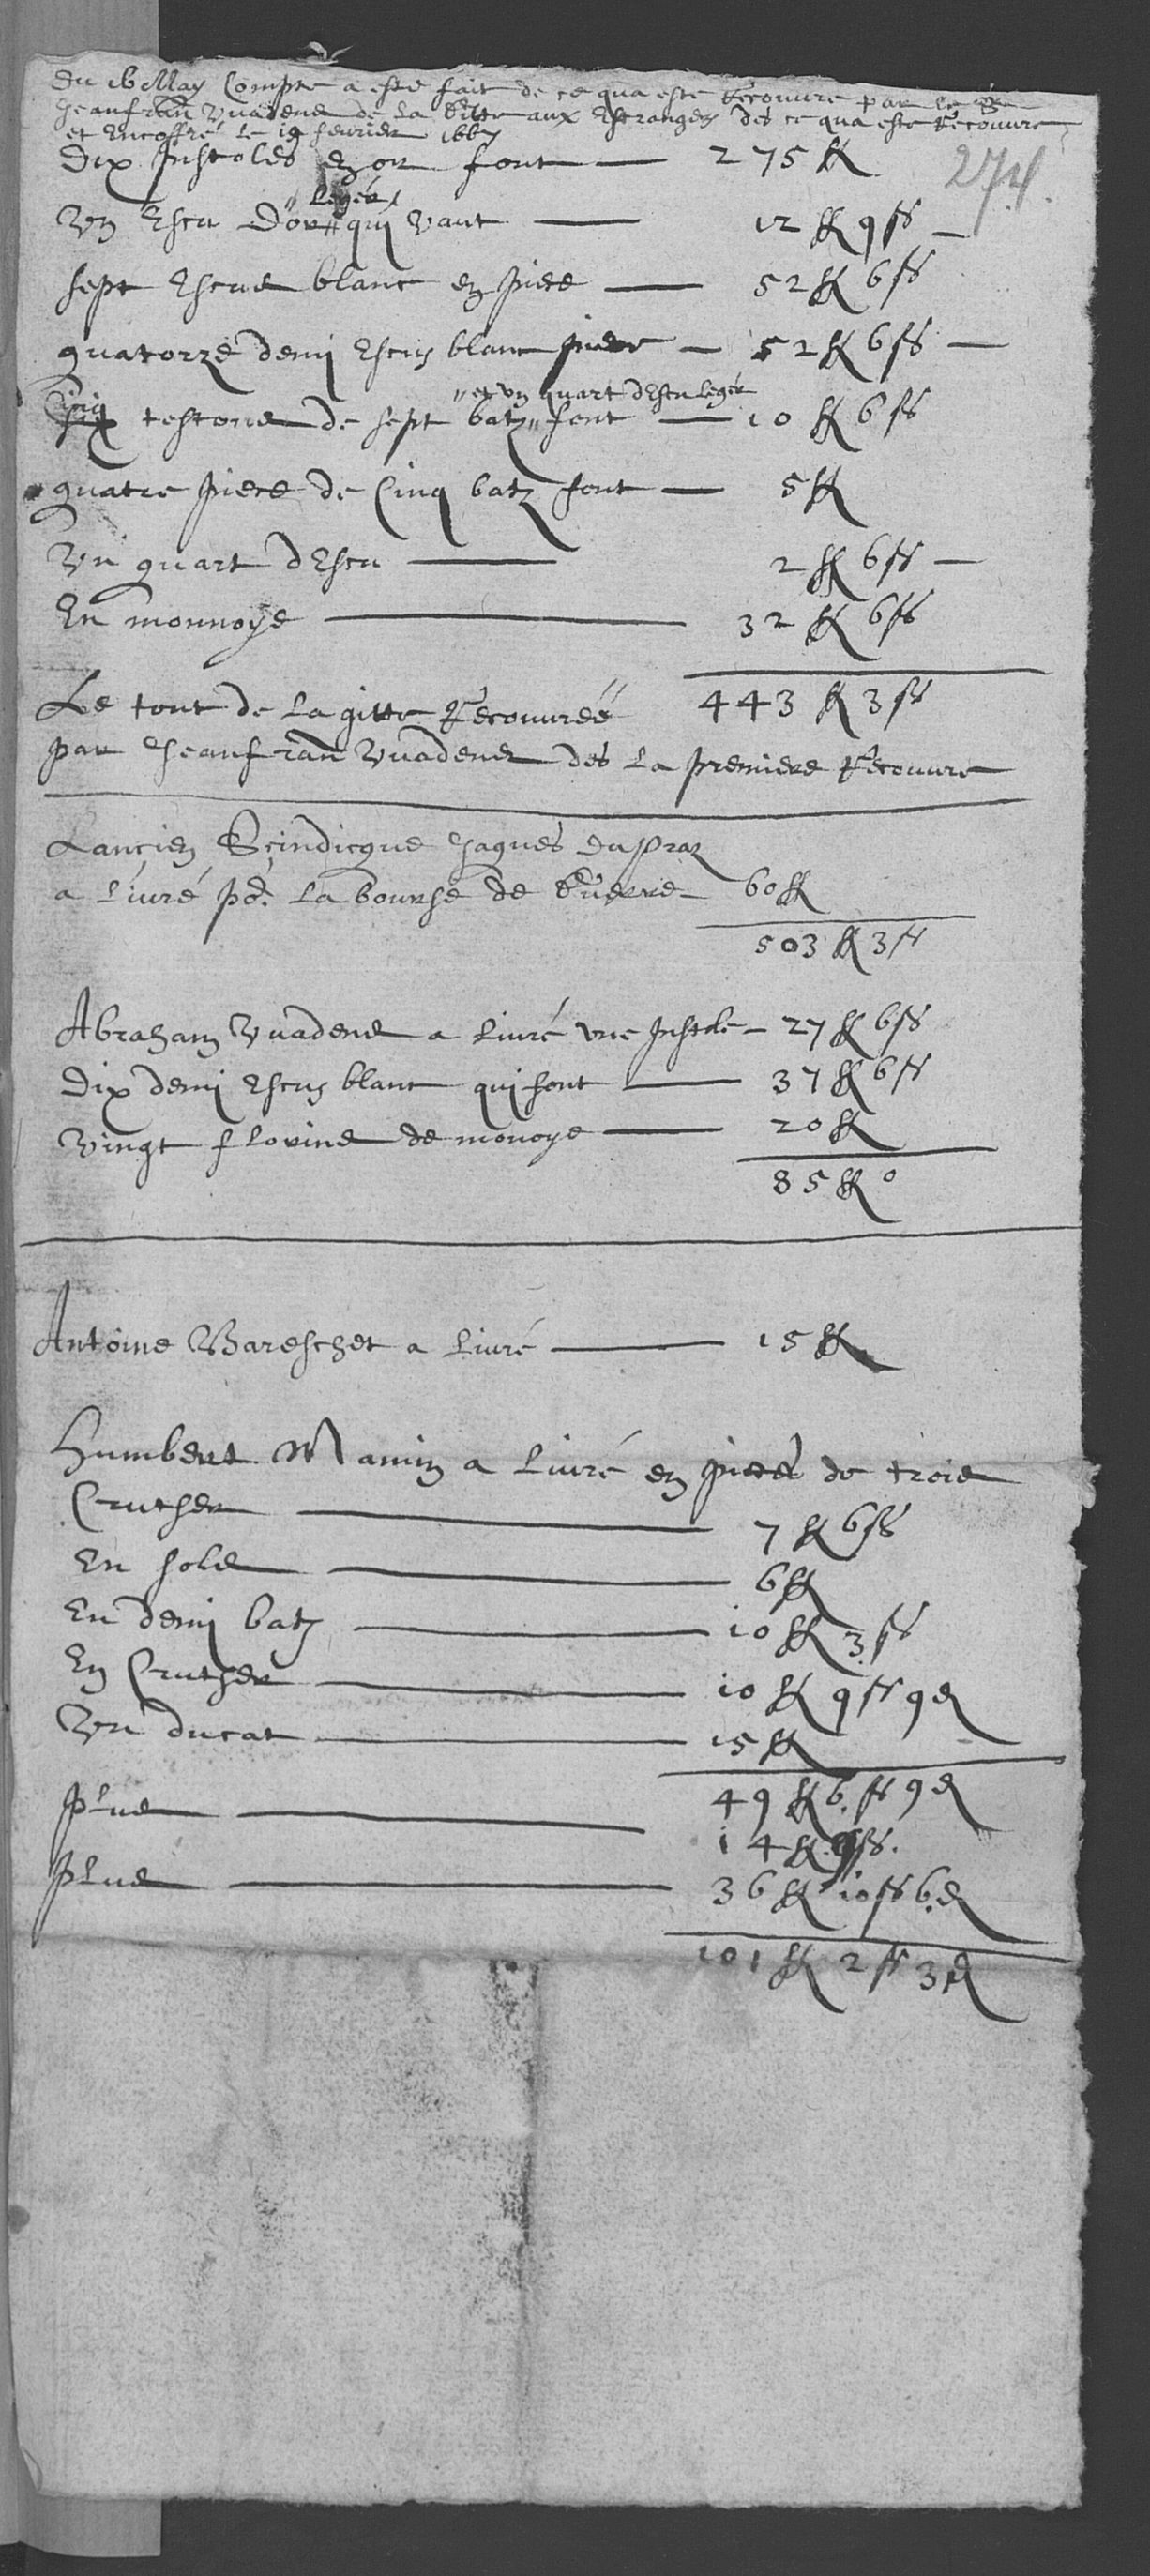 Du 16 May Compte a este fait de ce qua este Recouvre par le
Jeanfran Vuadens de la Gitte aux Estrangers des ce qua este Recouvre
et Encoffré le 19 fevrier 1667
274.
Dix pistoles en or font — 275 ff
Un Escu D'or leger qui vaut — 12 ff 9 ss —
sept Escus blanc en piece — 52 ff 6 ss
quatorze demi Escus blanc piece — 52 ff 6 ss —
Cinq testons de sept batz et un quart d'Escu leger font — 10 ff 6 ss
quatre piece de Cinq batz font — 5 ff
Un quart d'Escu — 2 ff 6 ss —
En monnoye — 32 ff 6 ss
443 ff 3 ss
Le tout de la gitte Recouvréé
par Jeanfran Vuadens des la premiere Recouvre
Lancien Scindicque Jaques Dupraz
a livré pr. la bourse de Guerre — 60 ff
503 ff 3 ss
Abraham Vuadens a livré une pistole — 27 ff 6 ss
Dix demi Escus blanc qui font — 37 ff 6 ss
Vingt florins de monoye — 20 ff
85 ff 0
Antoine Bareschet a livré — 15 ff
Humbert Mamin a livré en pieces de trois
Crutser — 7 ff 6 ss
En sols — 6 ff
En demi batz — 10 ff 3 ss
En Crutser — 10 ff 9 ss 9 d
Un ducat — 15 ff
49 ff 6 ss 9 d
plus — 14 ff 9 ss.
plus — 36 ff 10 ss 6 d
101 ff 2 ss 3 d